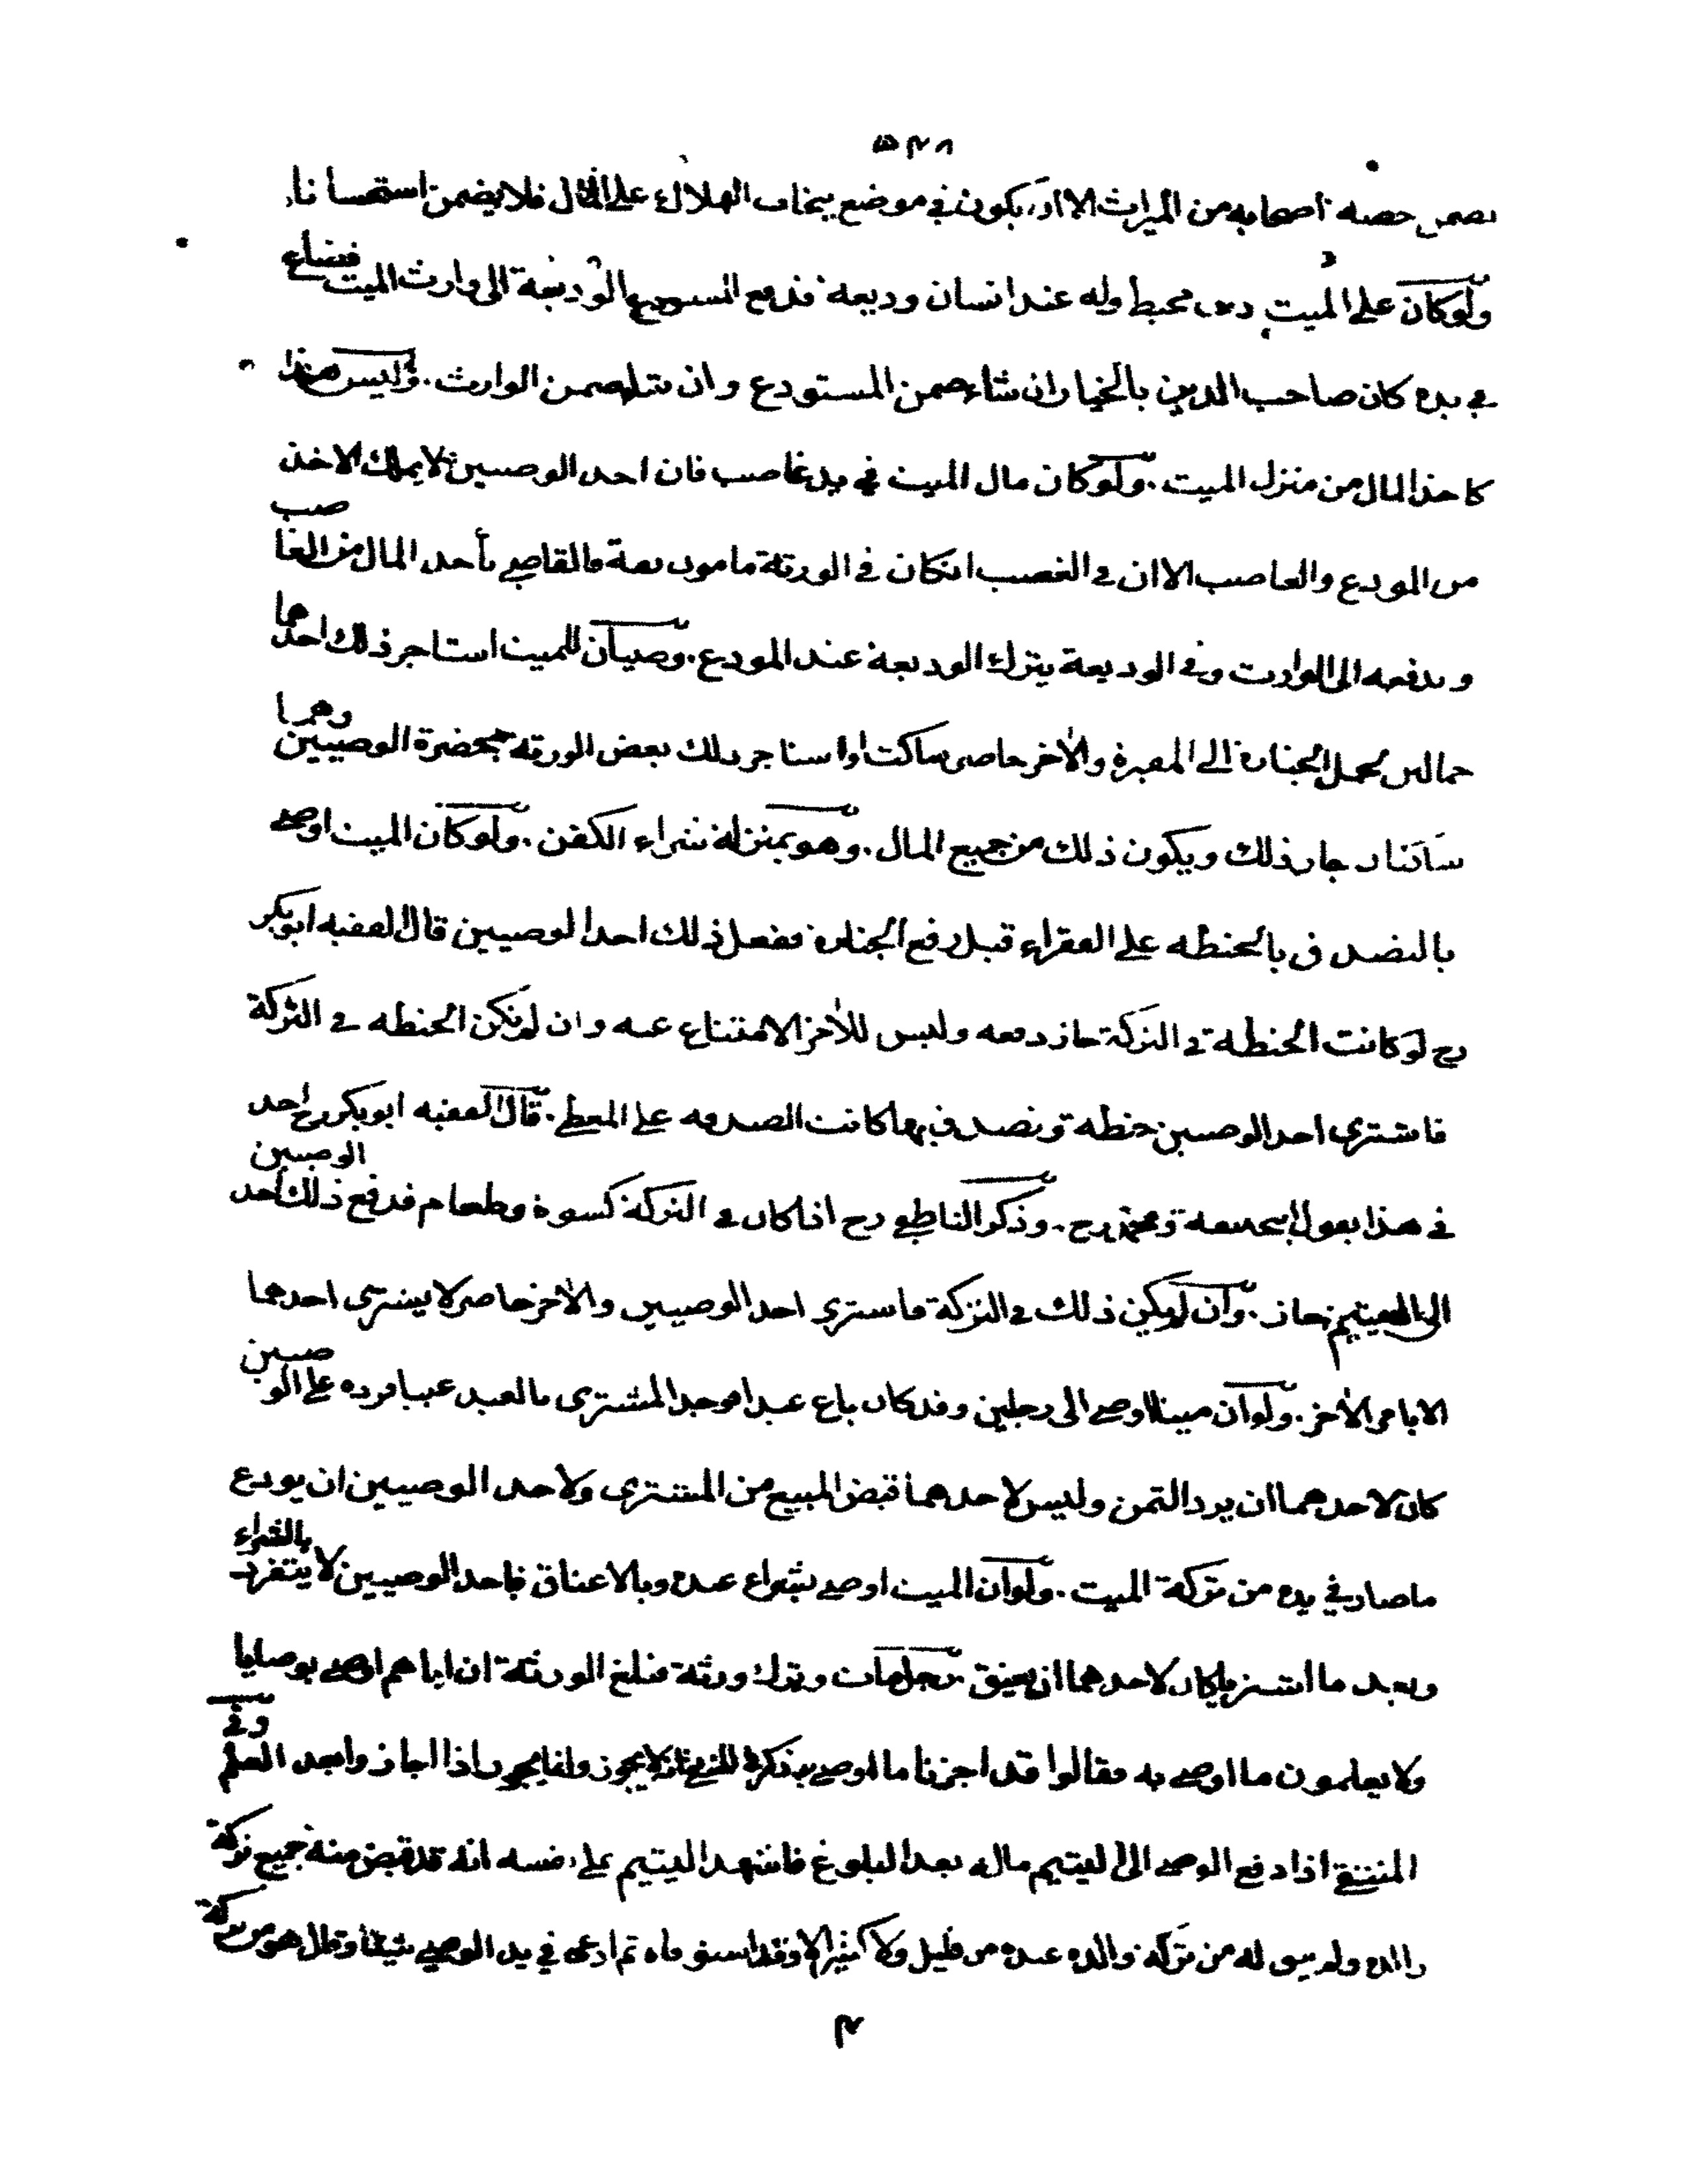 ٥٣٨
يضمن حصه اصحابه من الميراث الا ان يكون في موضع يخاف الهلاك على المال فلا يضمن استحسانا
ولو كان على الميت دين محيط وله عند انسان وديعه فدفع المستودع الوديعة الى وارث الميت فضاع
في يده كان صاحب الدين بالخيار ان شاء ضمن المستودع وان شاء ضمن الوارث . وليس هذا
كاخذ المال من منزل الميت . ولو كان مال الميت في يد غاصب فان احد الوصيين لا يملك الاخذ
من المودع والغاصب الا ان في الغصب ان كان في الورثة مامون ثقة فالقاضي يأخذ المال من الغاصب
ويدفعه الى الوارث وفي الوديعة يترك الوديعة عند المودع . وصيان للميت استاجر ذلك احدهما
حمالين لحمل الجنازة الى المقبرة والآخر حاضر ساكت او استاجر ذلك بعض الورثة بحضرة الوصيين وهما
ساكتان جاز ذلك ويكون ذلك من جميع المال . وهو بمنزلة شراء الكفن . ولو كان الميت اوصى
بالتصدق بالحنطه على الفقراء قبل رفع الجنازة ففعل ذلك احد الوصيين قال الفقيه ابو بكر
رح لو كانت الحنطة في التركة جاز دفعه وليس للآخر الامتناع عنه وان لم تكن الحنطه في التركة
فاشترى احد الوصيين حنطة وتصدق بها كانت الصدقه على المعطي . قال الفقيه ابو بكر رح احد
في هذا بقول ابي حنيفة ومحمد رح . وذكر الناطفي رح اذا كان في التركة كسوة وطعام فدفع ذلك احد الوصيين
الى اليتيم جاز . وان لم يكن ذلك في التركة فاشترى احد الوصيين والآخر حاضر لا يشترى احدهما
الا بامر الآخر . ولو ان ميتا اوصى الى رجلين وقد كان باع عبدا فوجد المشترى بالعبد عيبا فرده على الوصيين
كان لاحدهما ان يرد الثمن وليس لاحدهما قبض المبيع من المشترى ولاحد الوصيين ان يودع
ما صار في يده من تركة الميت . ولو ان الميت اوصى بشراء عبده وبالاعتاق فاحد الوصيين لا يتفرد بالشراء
وبعد ما اشتريا كان لاحدهما ان يعتق . رجل مات وترك ورثة فبلغ الورثة ان اباهم اوصى بوصايا
ولا يعلمون ما اوصى به فقالوا قد اجزنا ما اوصى به ذكر في المنتقى انه لا يجوز وانما يجوز اذا اجازوا بعد العلم وفي
المنتقى اذا دفع الوصي الى اليتيم ماله بعد البلوغ فاشهد اليتيم على نفسه انه قد قبض منه جميع تركة
والده ولم يبق له من تركة والده عنده من قليل ولا كثير الا وقد استوفاه ثم ادعى في يد الوصي شيئا وقال هو من تركة